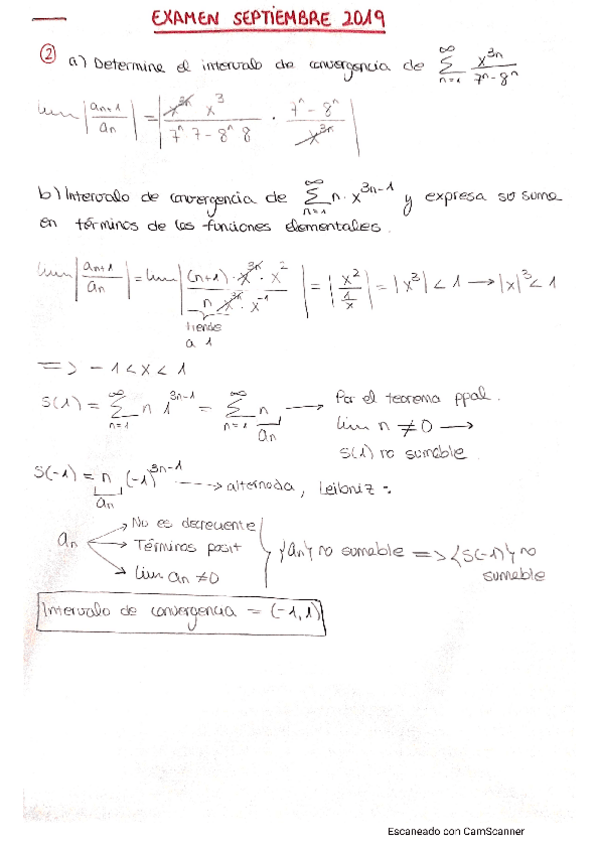 EXAMEN SEPTIEMBRE 2019
② a) Determine el intervalo de convergencia de ∑_{n=1}^{∞} x^{3n} / (7^n - 8^n)
lim |a_{n+1} / a_n| = | (x^{3n} x^3) / (7^n 7 - 8^n 8) · (7^n - 8^n) / x^{3n} |
b) Intervalo de convergencia de ∑_{n=1}^{∞} n · x^{3n-1} y expresa su suma
en términos de las funciones elementales.
lim |a_{n+1} / a_n| = lim | ((n+1) · x^{3n} · x^2) / (n x^{3n} · x^{-1}) | = | x^2 / (1/x) | = |x^3| < 1 → |x|^3 < 1
tiende
a 1
=> -1 < x < 1
S(1) = ∑_{n=1}^{∞} n 1^{3n-1} = ∑_{n=1}^{∞} n → Por el teorema ppal.
a_n
lim n ≠ 0 →
S(1) no sumable
S(-1) = n (-1)^{3n-1} ----> alternada, Leibniz :
a_n
a_n → No es decreciente
→ Términos posit
→ lim a_n ≠ 0
{a_n} no sumable => {S(-1)} no
sumable
Intervalo de convergencia = (-1,1)
Escaneado con CamScanner